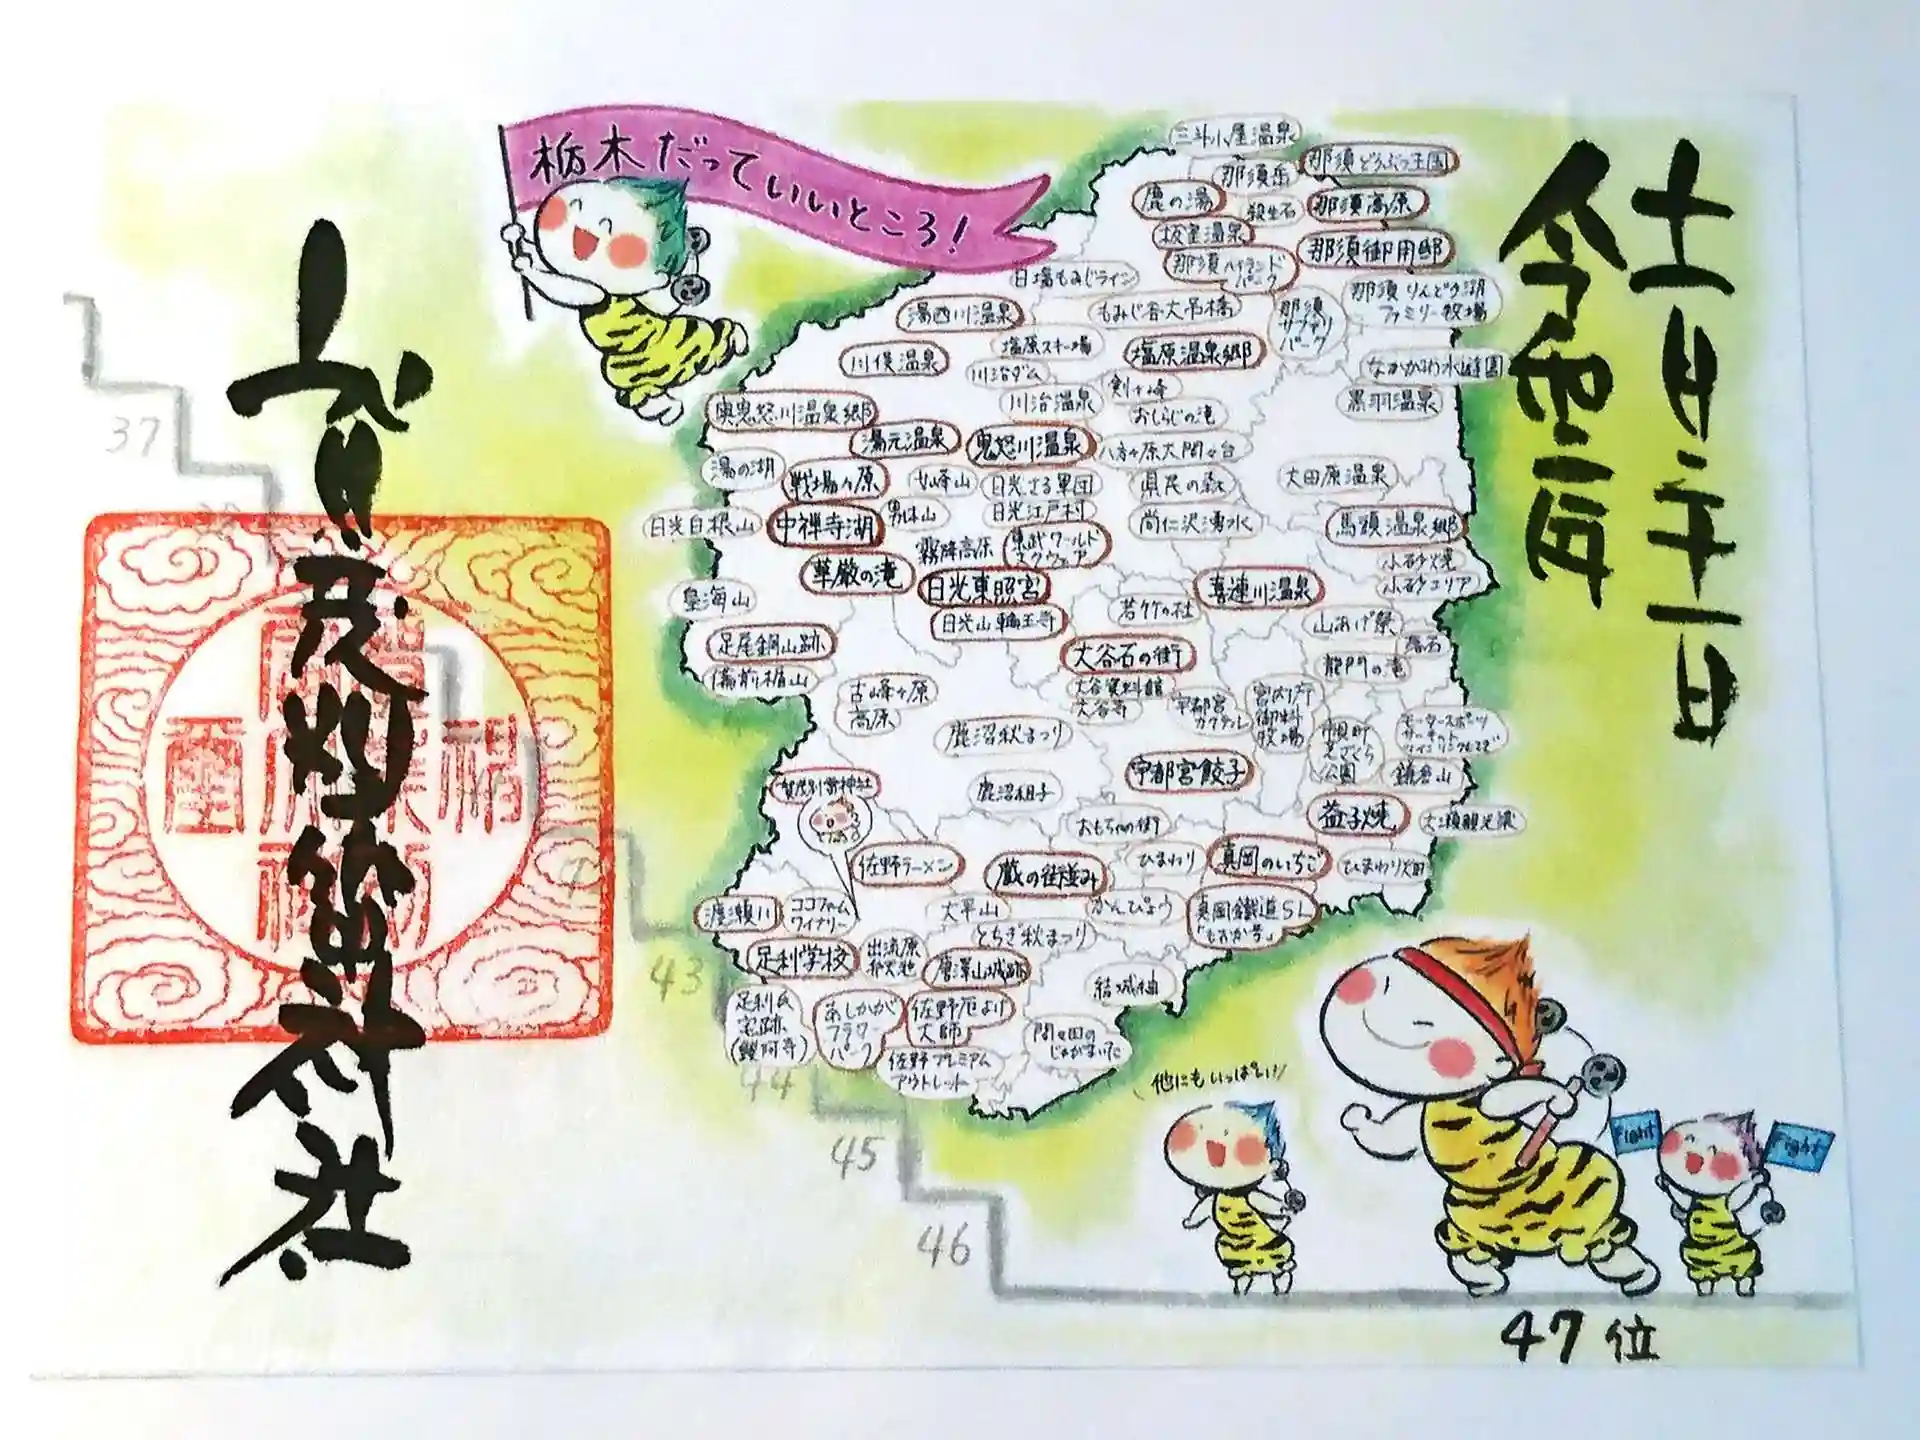 栃木だっていいところ!
令和二年
十一月二十一日
賀茂別雷神社
三斗小屋温泉
那須岳
那須どうぶつ王国
鹿の湯
殺生石
那須高原
板室温泉
那須御用邸
那須ハイランド
パーク
日塩もみじライン
那須りんどう湖
ファミリー牧場
湯西川温泉
もみじ谷大吊橋
那須
サファリ
パーク
塩原スキー場
塩原温泉郷
川俣温泉
川治ダム
なかがわ水遊園
剣ヶ峰
奥鬼怒川温泉郷
川治温泉
おしらじの滝
黒羽温泉
湯元温泉
鬼怒川温泉
八方ヶ原大間々台
湯の湖
戦場ヶ原
女峰山
日光さる軍団
県民の森
大田原温泉
日光白根山
中禅寺湖
男体山
日光江戸村
尚仁沢湧水
馬頭温泉郷
霧降高原
東武ワールド
スクウェア
小砂焼
華厳の滝
日光東照宮
喜連川温泉
小砂エリア
皇海山
日光山輪王寺
若竹の杜
山あげ祭
足尾銅山跡
大谷石の街
龍門の滝
備前楯山
古峰ヶ原
高原
大谷資料館
大谷寺
宇都宮
カクテル
宮内庁
御料
牧場
鹿沼秋まつり
市貝町
芝ざくら
公園
モータースポーツ
サーキット
ツインリンクもてぎ
鎌倉山
宇都宮餃子
賀茂別雷神社
鹿沼組子
益子焼
大瀬観光簗
おもちゃの街
佐野ラーメン
蔵の街並み
ひまわり
真岡のいちご
ひまわり畑
渡瀬川
ココファーム
ワイナリー
大平山
かんぴょう
真岡鐵道SL
「もおか号」
とちぎ秋まつり
足利学校
出流原
弁天池
唐澤山城跡
結城紬
足利氏
宅跡
(鑁阿寺)
あしかが
フラワー
パーク
佐野厄よけ
大師
間々田の
じゃがまいた
佐野プレミアム
アウトレット
他にもいっぱい!
Fight
Fight
37
43
44
45
46
47位